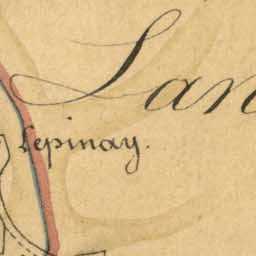 Lan
Lepinay.